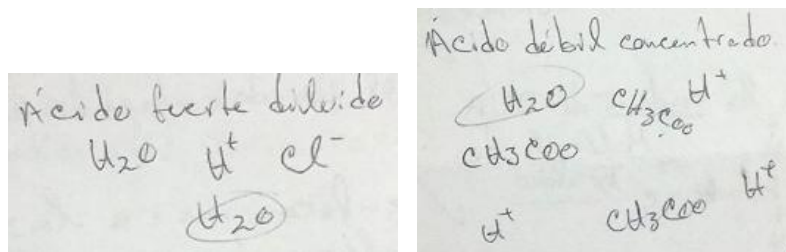 Ácido fuerte diluido
H2O H+ Cl-
H2O
Ácido débil concentrado.
H2O CH3COO H+
CH3COO
H+ CH3COO H+